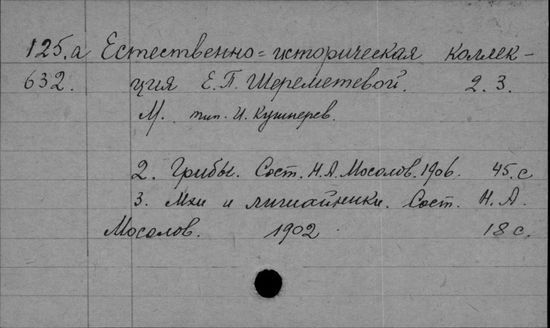 125.а Естественно=историческая коллек-
632. ция Е.П. Шереметевой. 2. 3.
М. тип. И. Кушнерев.
2. Грибы. Сост. Н.А. Мосолов. 1906. 45. с
3. Мхи и лишайники. Сост. Н. А.
Мосолов. 1902. 18 с.